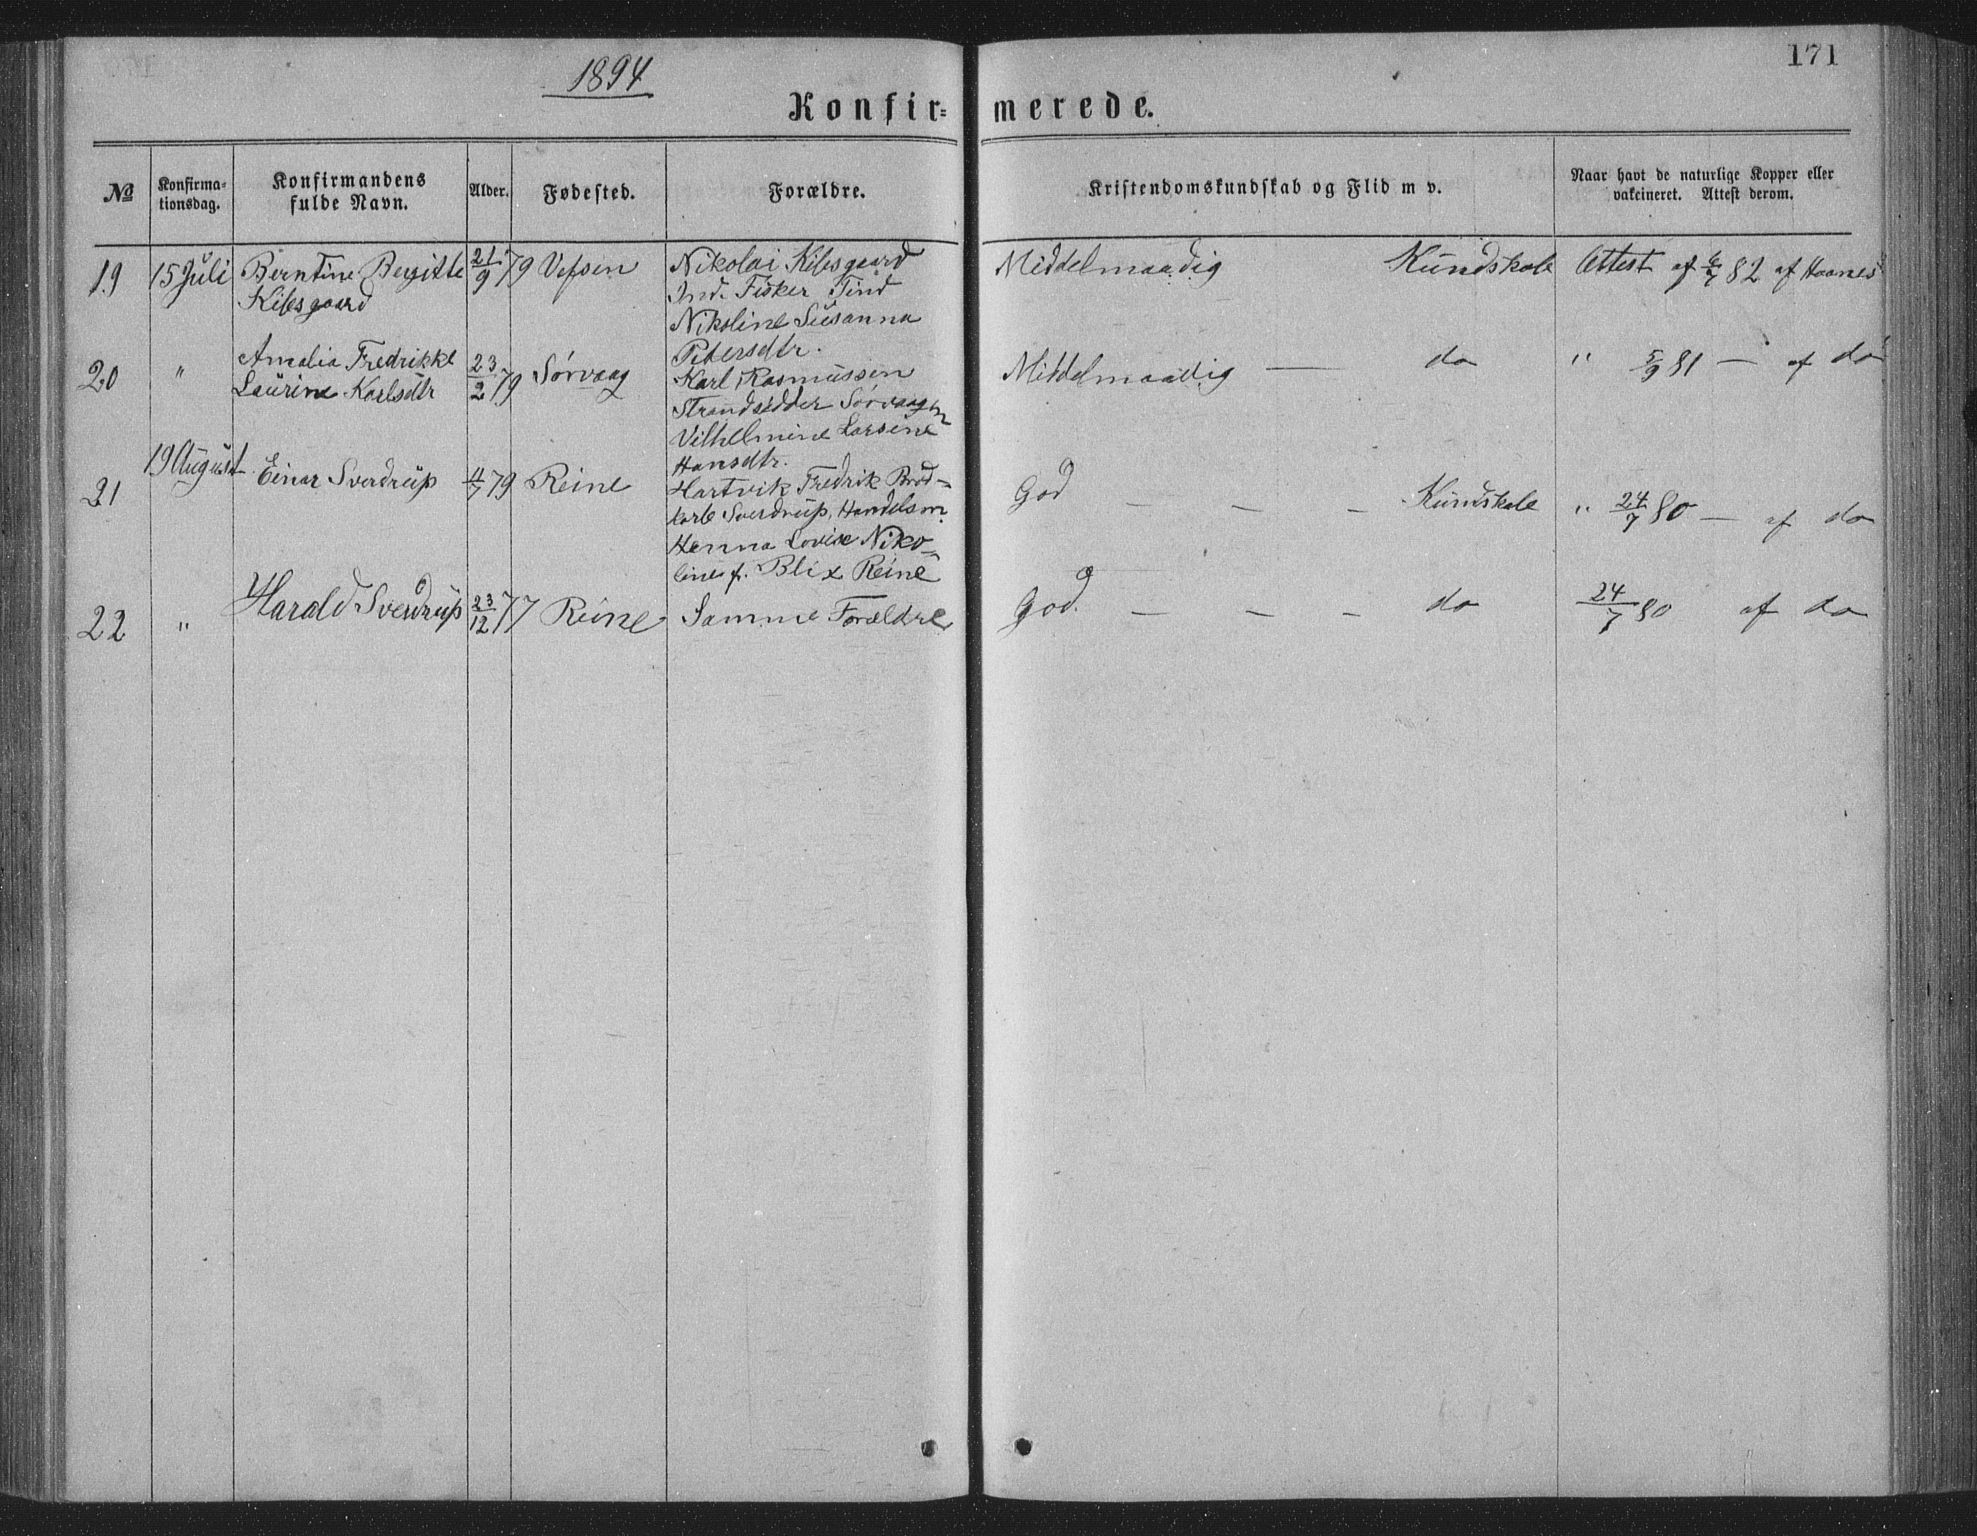 171
1894
Konfir= merede.
№ Konfirma= tionsdag. Konfirmandens fulde Navn. Alder. Fødested. Forældre. Kristendomskundskab og Flid m v. Naar havt de naturlige Kopper eller vakcineret. Attest derom.
19 15 Juli Berntine Bergitte 21/9 79 Vefsen Nikolai Kibsgaard Middelmaadig Kundskab Attest af 6/7 82 af Haanes
Kibsgaard Ind. Fisker Tind
Nikoline Susanna
Petersdtr.
20 " Amalia Fredrikke 23/2 79 Sørvaag Karl Rasmussen Middelmaadig — do " 5/9 81 — af do
Laurine Karlsdtr Strandsidder Sørvaagen
Vilhelmine Larsine
Hansdtr.
21 19 August Einar Sverdrup 11/7 79 Reine Hartvik Fredrik Brod- God — — — Kundskab " 24/7 80 — af do
korb Sverdrup, Handelsm.
Henna Lovise Niko-
line f. Blix Reine
22 " Harald Sverdrup 23/12 77 Reine Samme Forældre God. — — — do 24/7 80 af do